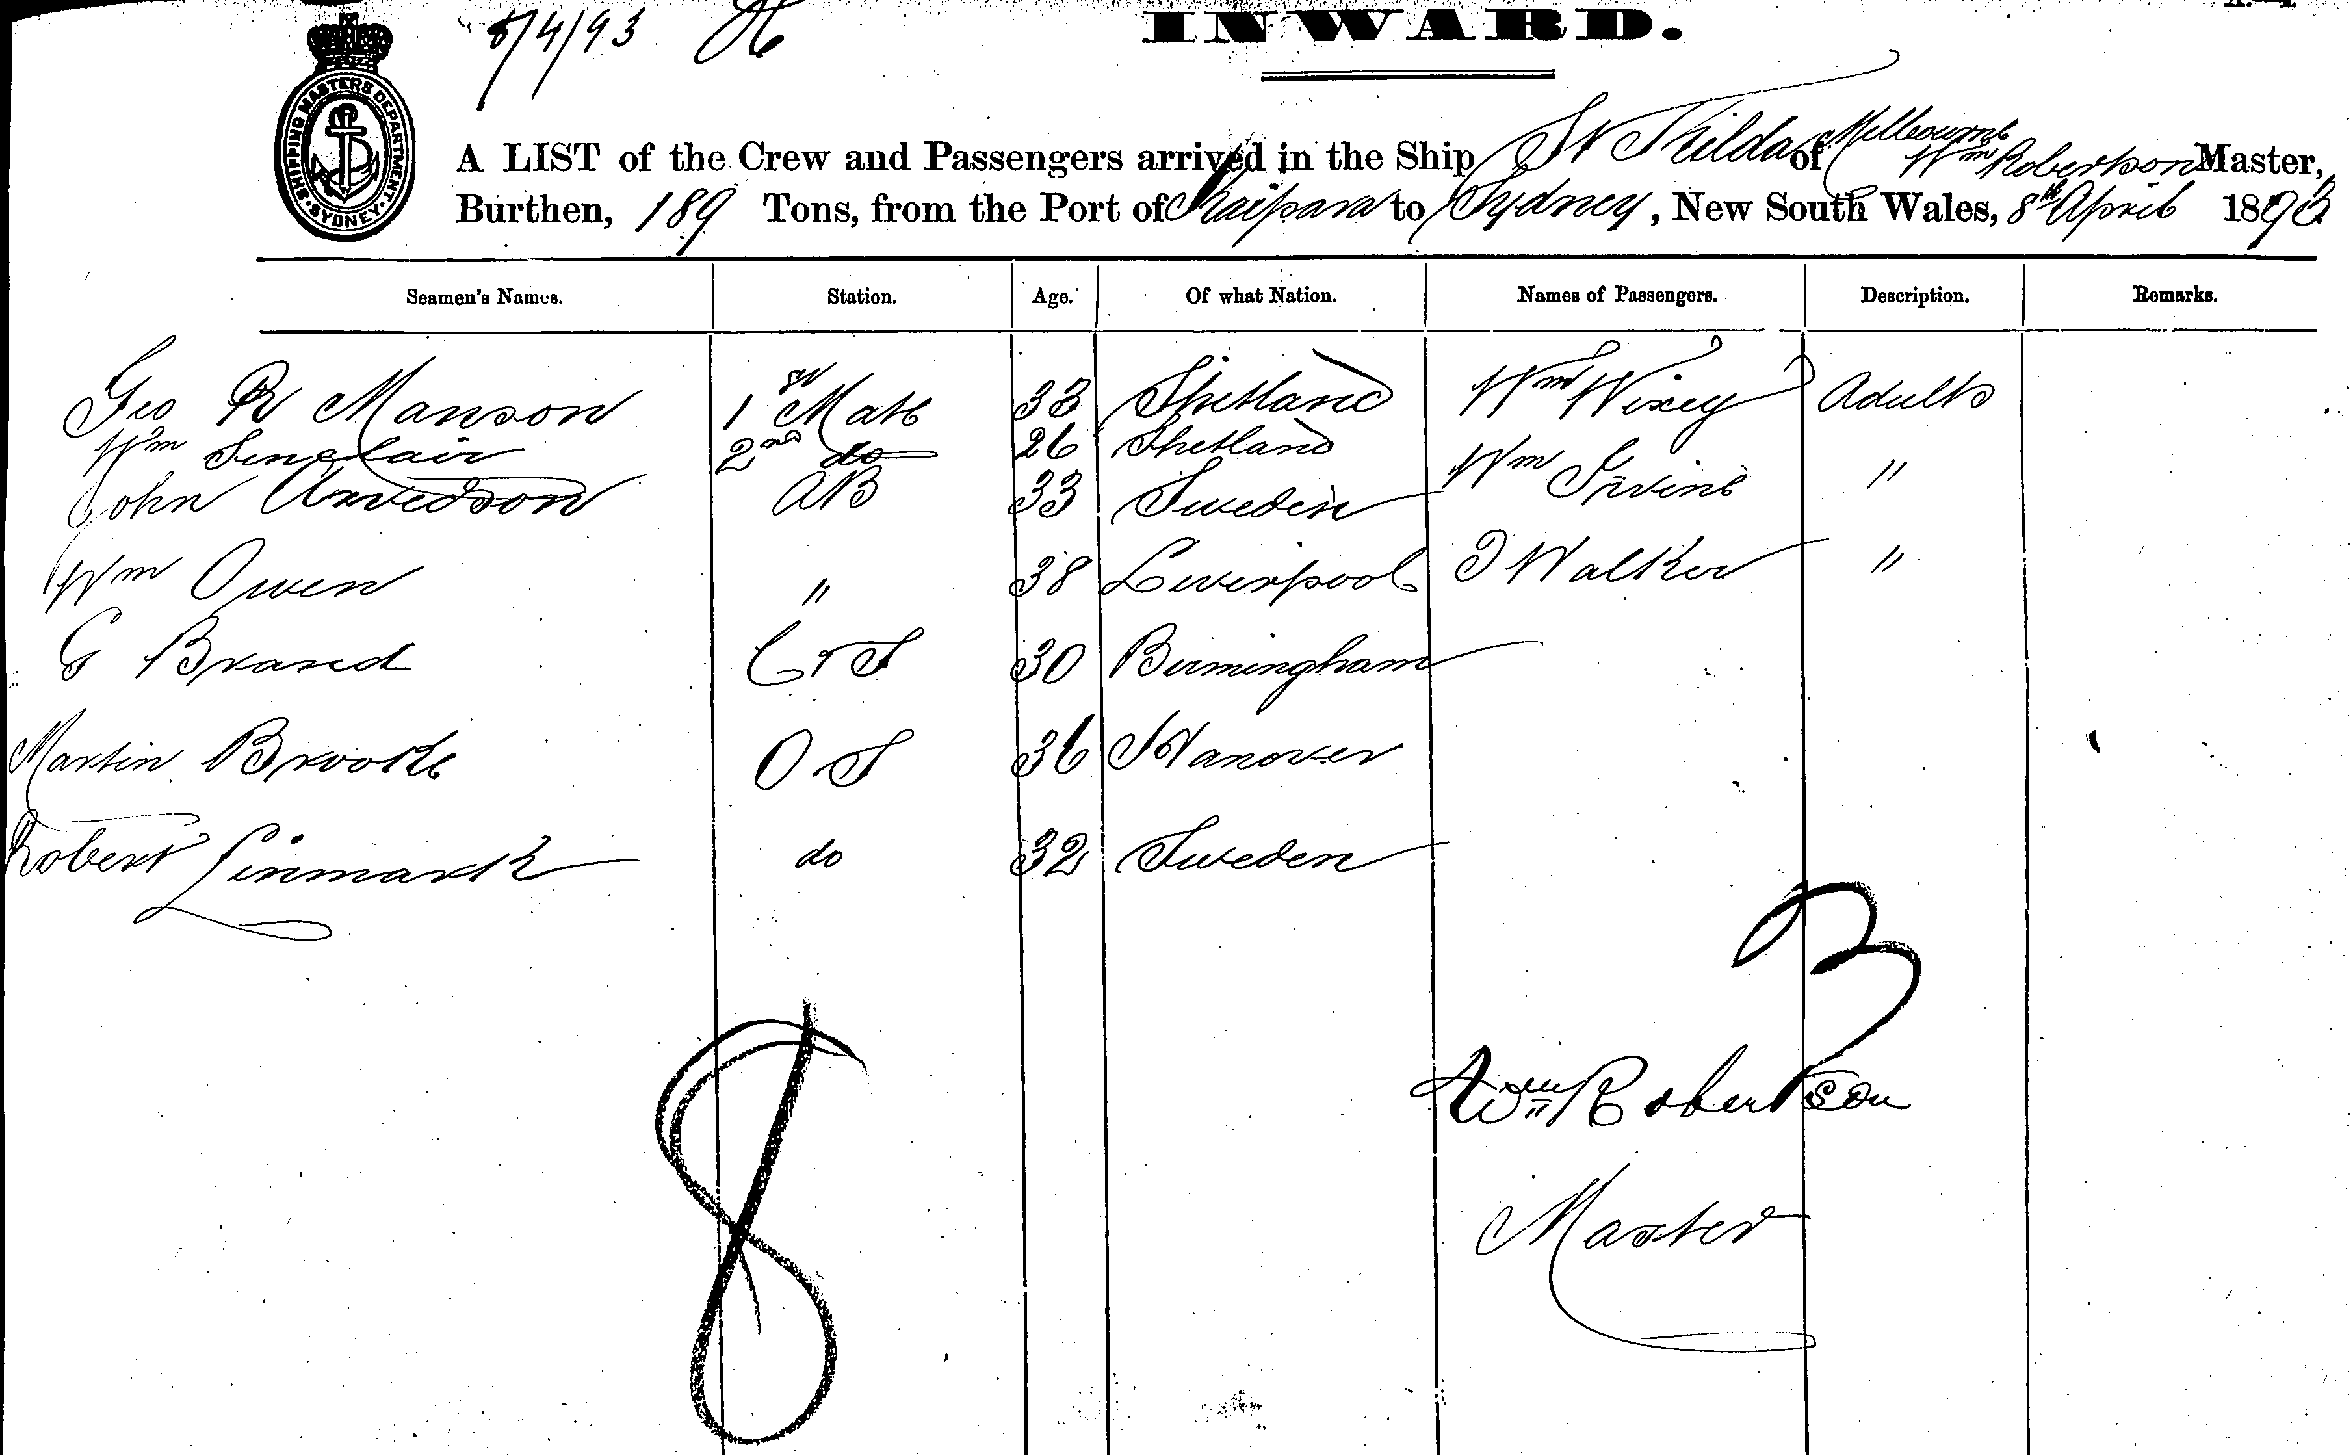 8/4/93
INWARD.
SHIPPING MASTERS DEPARTMENT. SYDNEY.
A LIST of the Crew and Passengers arrived in the Ship St Kilda of Melbourne Wm Robertson Master,
Burthen, 189 Tons, from the Port of Kaipara to Sydney, New South Wales, 8th April 1893
Seamen's Names. Station. Age. Of what Nation. Names of Passengers. Description. Remarks.
Geo R Manson 1st Mate 33 Shetland Wm Wixey Adults
Wm Sinclair 2nd do 26 Shetland
John Arvedson AB 33 Sweden Wm Irvine "
Wm Owen " 38 Liverpool J Walker "
G Brand C & S 30 Birmingham
Martin Brooke O S 36 Hanover
Robert Linmark do 32 Sweden
3
8
Wm Robertson
Master